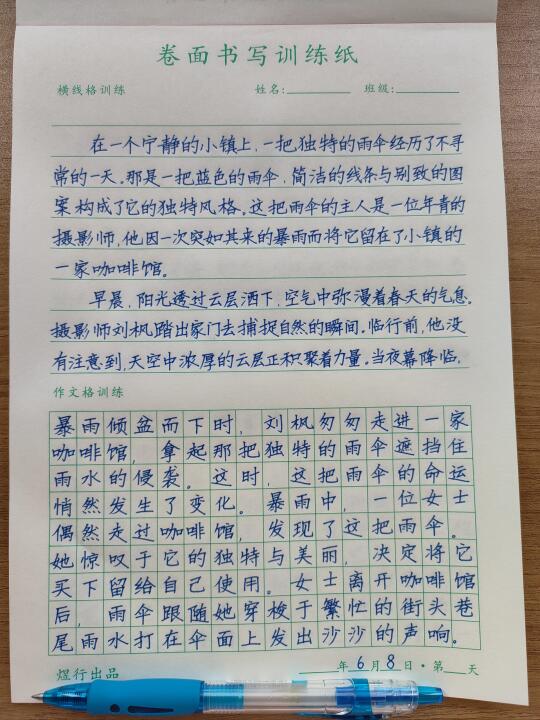 卷面书写训练纸
横线格训练 姓名:________ 班级:________
在一个宁静的小镇上,一把独特的雨伞经历了不寻
常的一天。那是一把蓝色的雨伞,简洁的线条与别致的图
案构成了它的独特风格。这把雨伞的主人是一位年青的
摄影师,他因一次突如其来的暴雨而将它留在了小镇的
一家咖啡馆。
早晨,阳光透过云层洒下,空气中弥漫着春天的气息。
摄影师刘枫踏出家门去捕捉自然的瞬间。临行前,他没
有注意到,天空中浓厚的云层正积聚着力量。当夜幕降临,
作文格训练
暴雨倾盆而下时,刘枫匆匆走进一家
咖啡馆,拿起那把独特的雨伞遮挡住
雨水的侵袭。这时,这把雨伞的命运
悄然发生了变化。暴雨中,一位女士
偶然走过咖啡馆,发现了这把雨伞。
她惊叹于它的独特与美丽,决定将它
买下留给自己使用。女士离开咖啡馆
后,雨伞跟随她穿梭于繁忙的街头巷
尾雨水打在伞面上发出沙沙的声响。
煜行出品 ____年6月8日·第__天